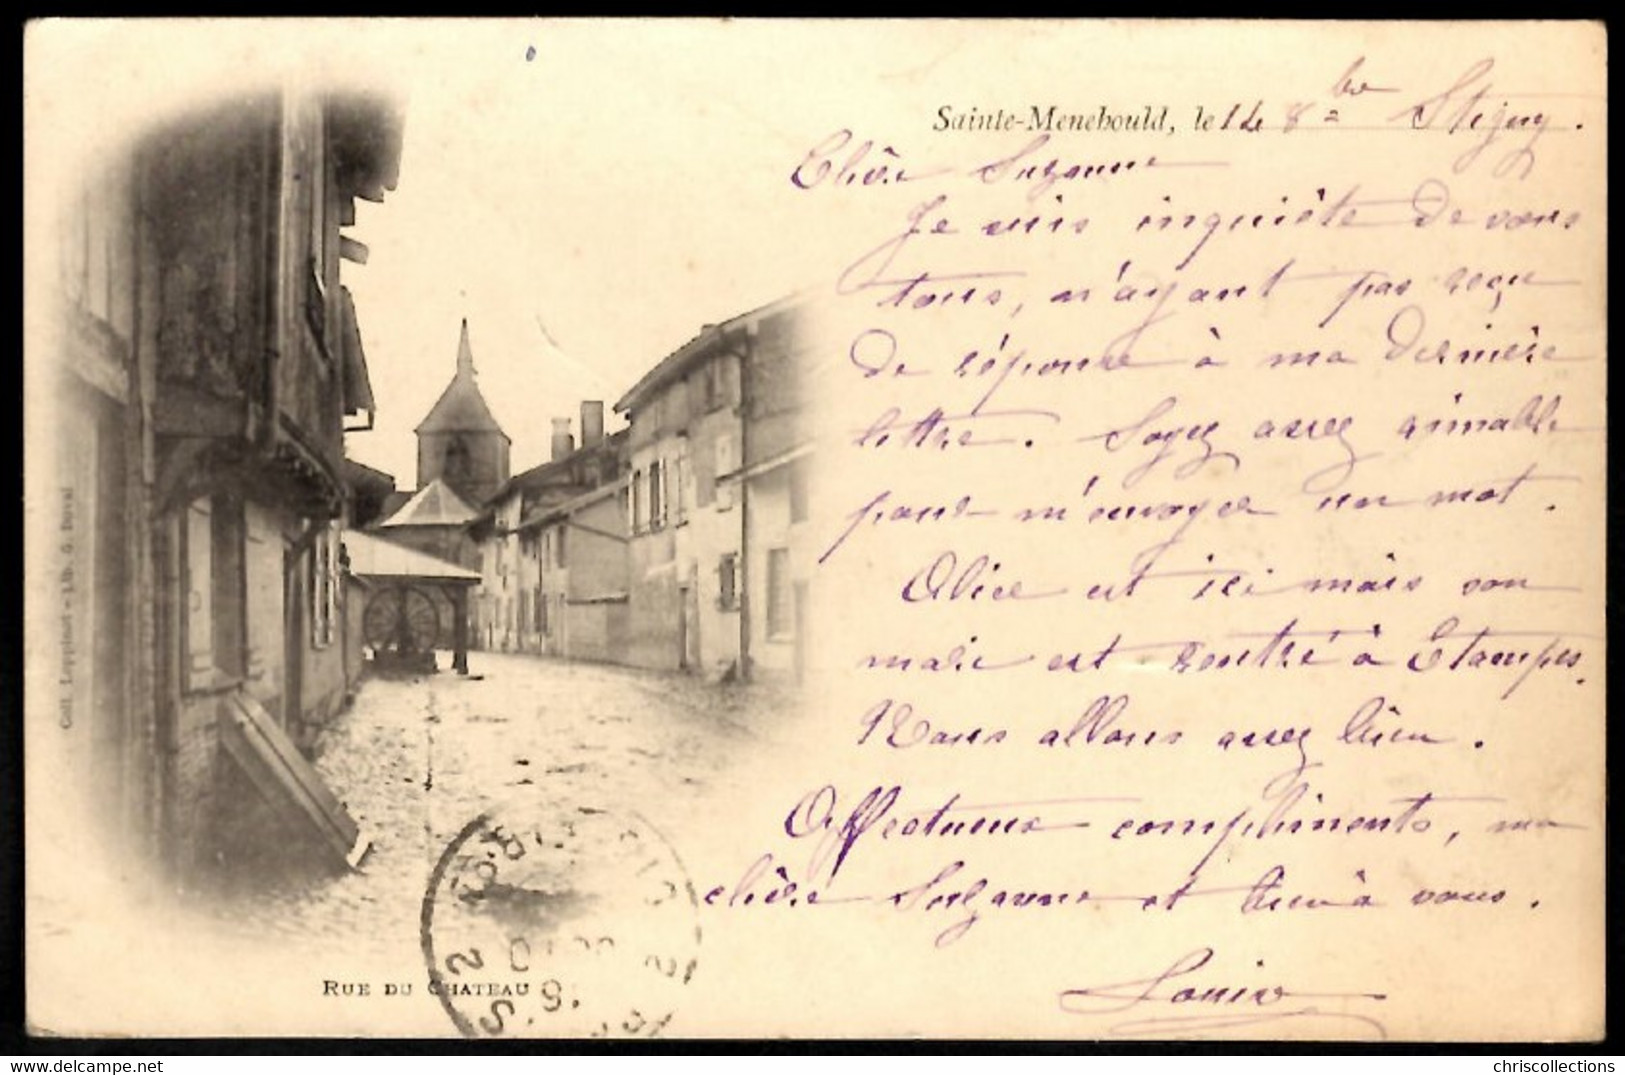 Sainte-Menehould, le 14 8bre Stigny.
Chère Suzanne
Je suis inquiète de vous
tous, n'ayant pas reçu
de réponse à ma dernière
lettre. Soyez assez aimable
pour m'envoyer un mot.
Alice est ici mais son
mari est rentré à Etampes.
Nous allons assez bien.
Affectueux compliments, ma
chère Suzanne et bien à vous.
RUE DU CHATEAU
Coll. Leppinet - J. Ib. G. Duval
chriscollections